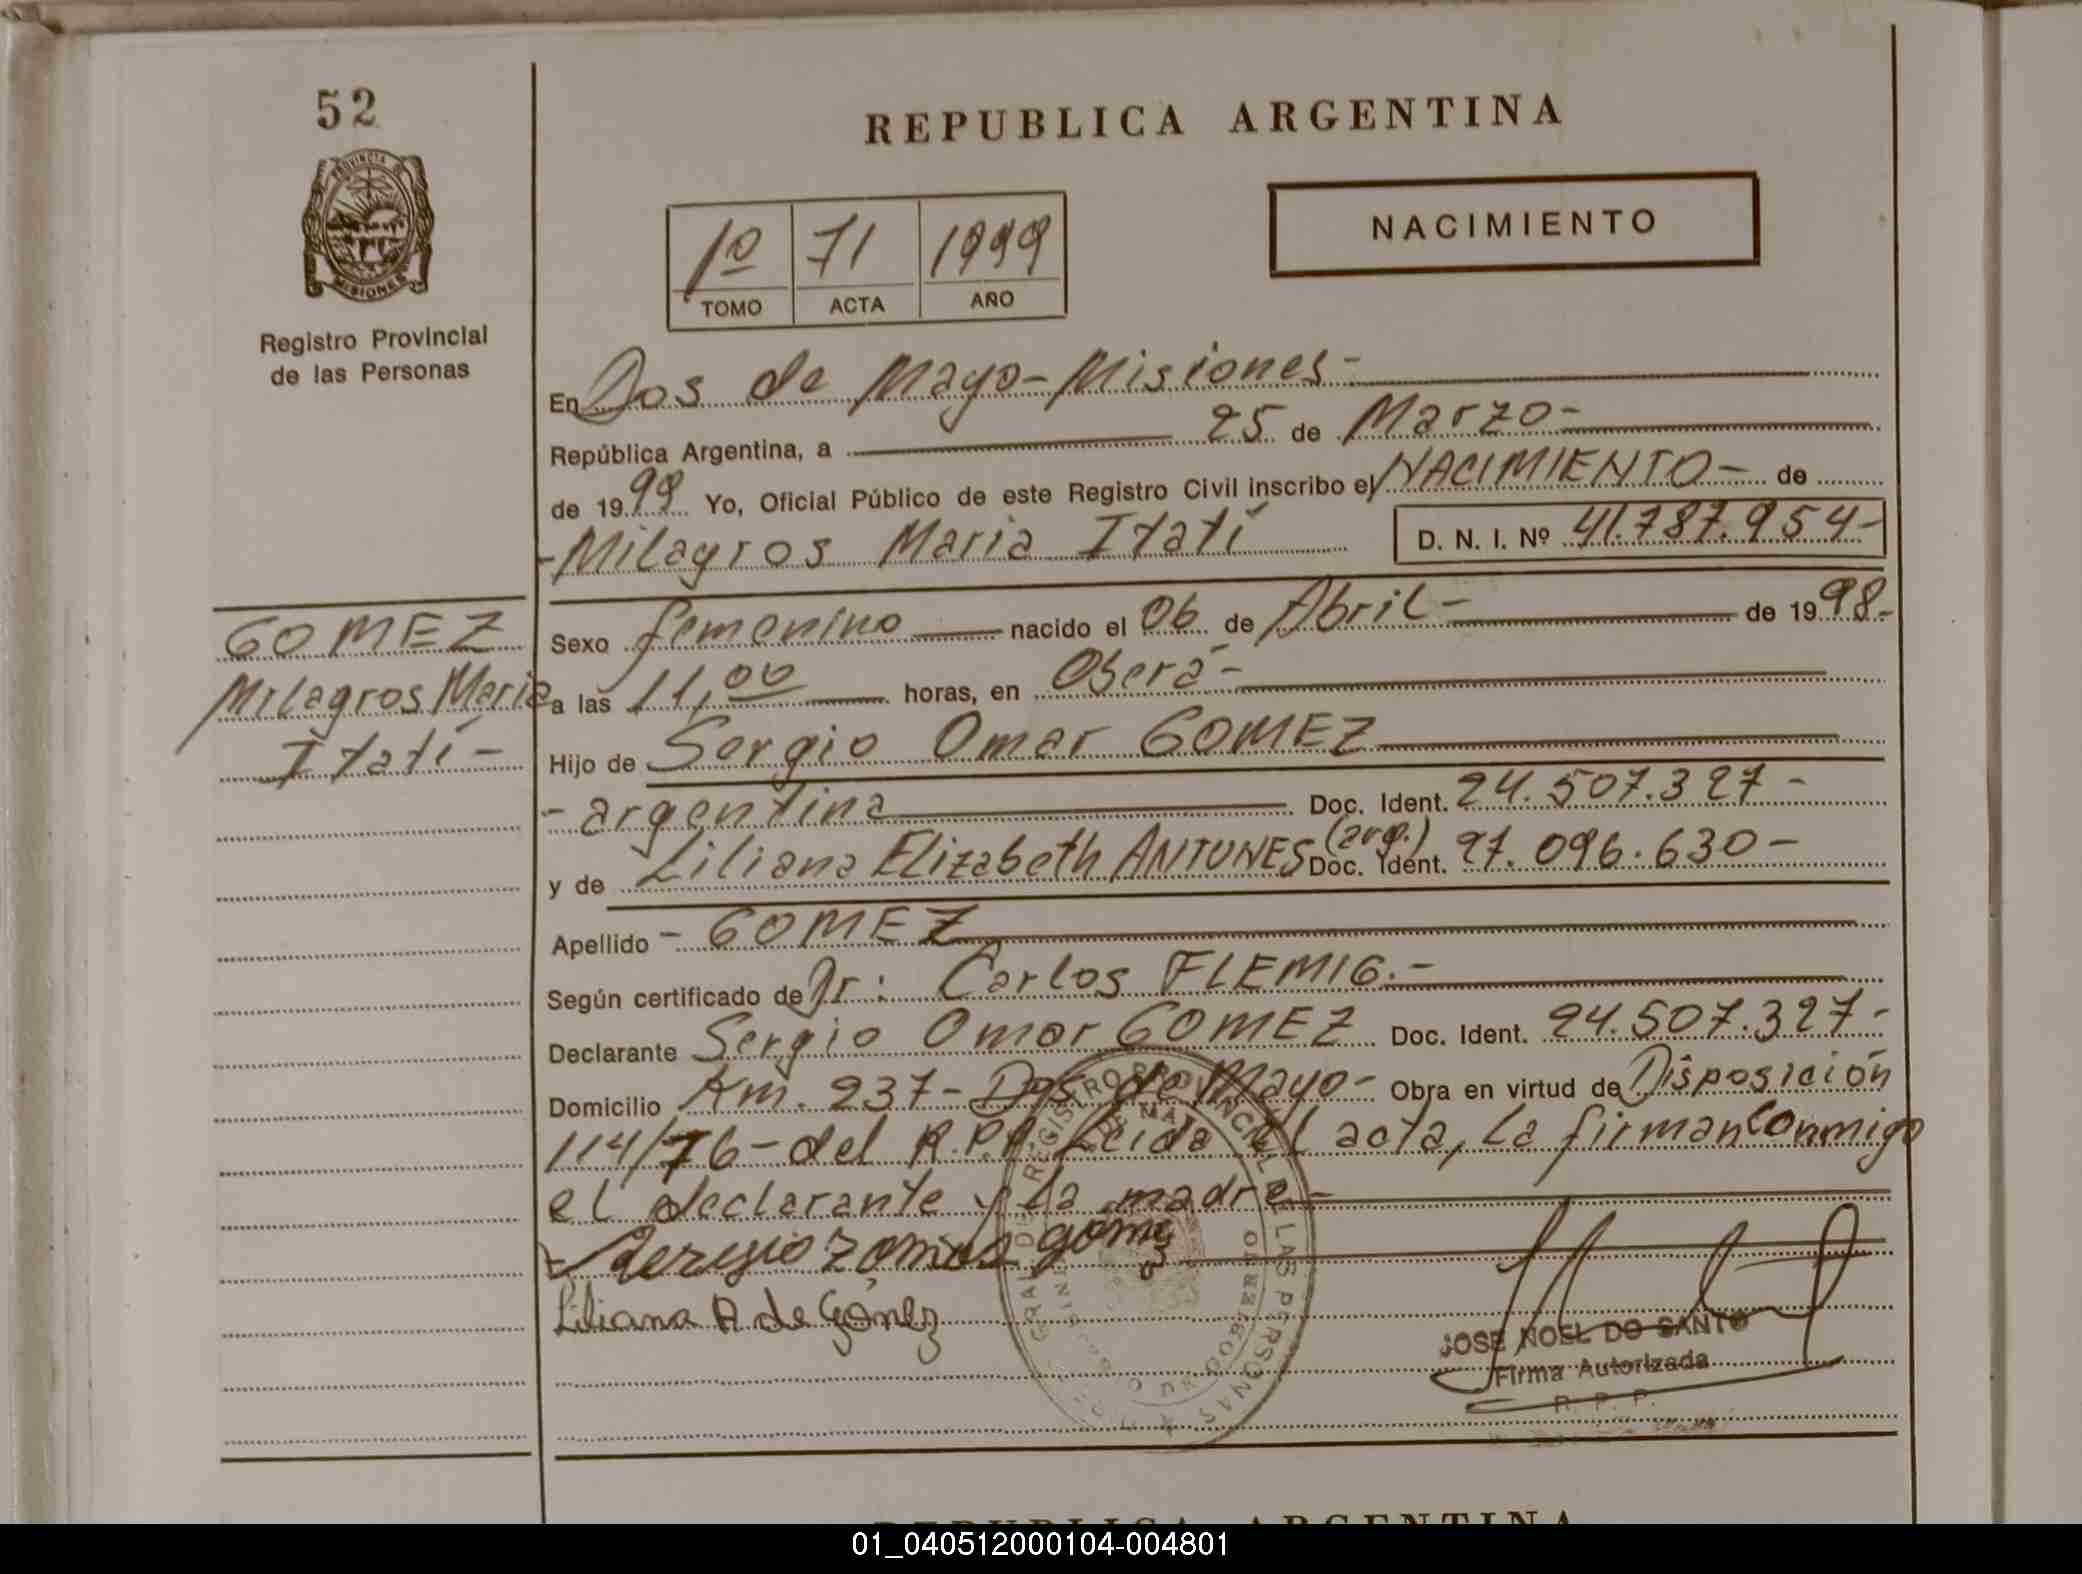 52
PROVINCIA DE
MISIONES
Registro Provincial
de las Personas
REPUBLICA ARGENTINA
1º 71 1999
TOMO ACTA AÑO
NACIMIENTO
En Dos de Mayo-Misiones-
República Argentina, a 25 de Marzo-
de 1999 Yo, Oficial Público de este Registro Civil inscribo el NACIMIENTO- de
-Milagros Maria Itatí D. N. I. Nº 41.787.954-
GOMEZ
Milagros Maria
Itatí-
Sexo femenino nacido el 06 de Abril- de 1998.-
a las 11,00 horas, en Oberá-
Hijo de Sergio Omar GOMEZ
-argentina Doc. Ident. 24.507.327-
y de Liliana Elizabeth ANTUNES (arg.) Doc. Ident. 27.096.630-
Apellido - GOMEZ
Según certificado de Dr: Carlos FLEMIG.-
Declarante Sergio Omar GOMEZ Doc. Ident. 24.507.327-
Domicilio Km. 237- Dos de Mayo- Obra en virtud de Disposición
114/76-del R.P.P. Leida el acta, la firman conmigo
el declarante y la madre-
Liliana A de Gómez
REGISTRO PROVINCIAL DE LAS PERSONAS
JOSE NOEL DO SANTO
Firma Autorizada
R. P. P.
REPUBLICA ARGENTINA
01_040512000104-004801